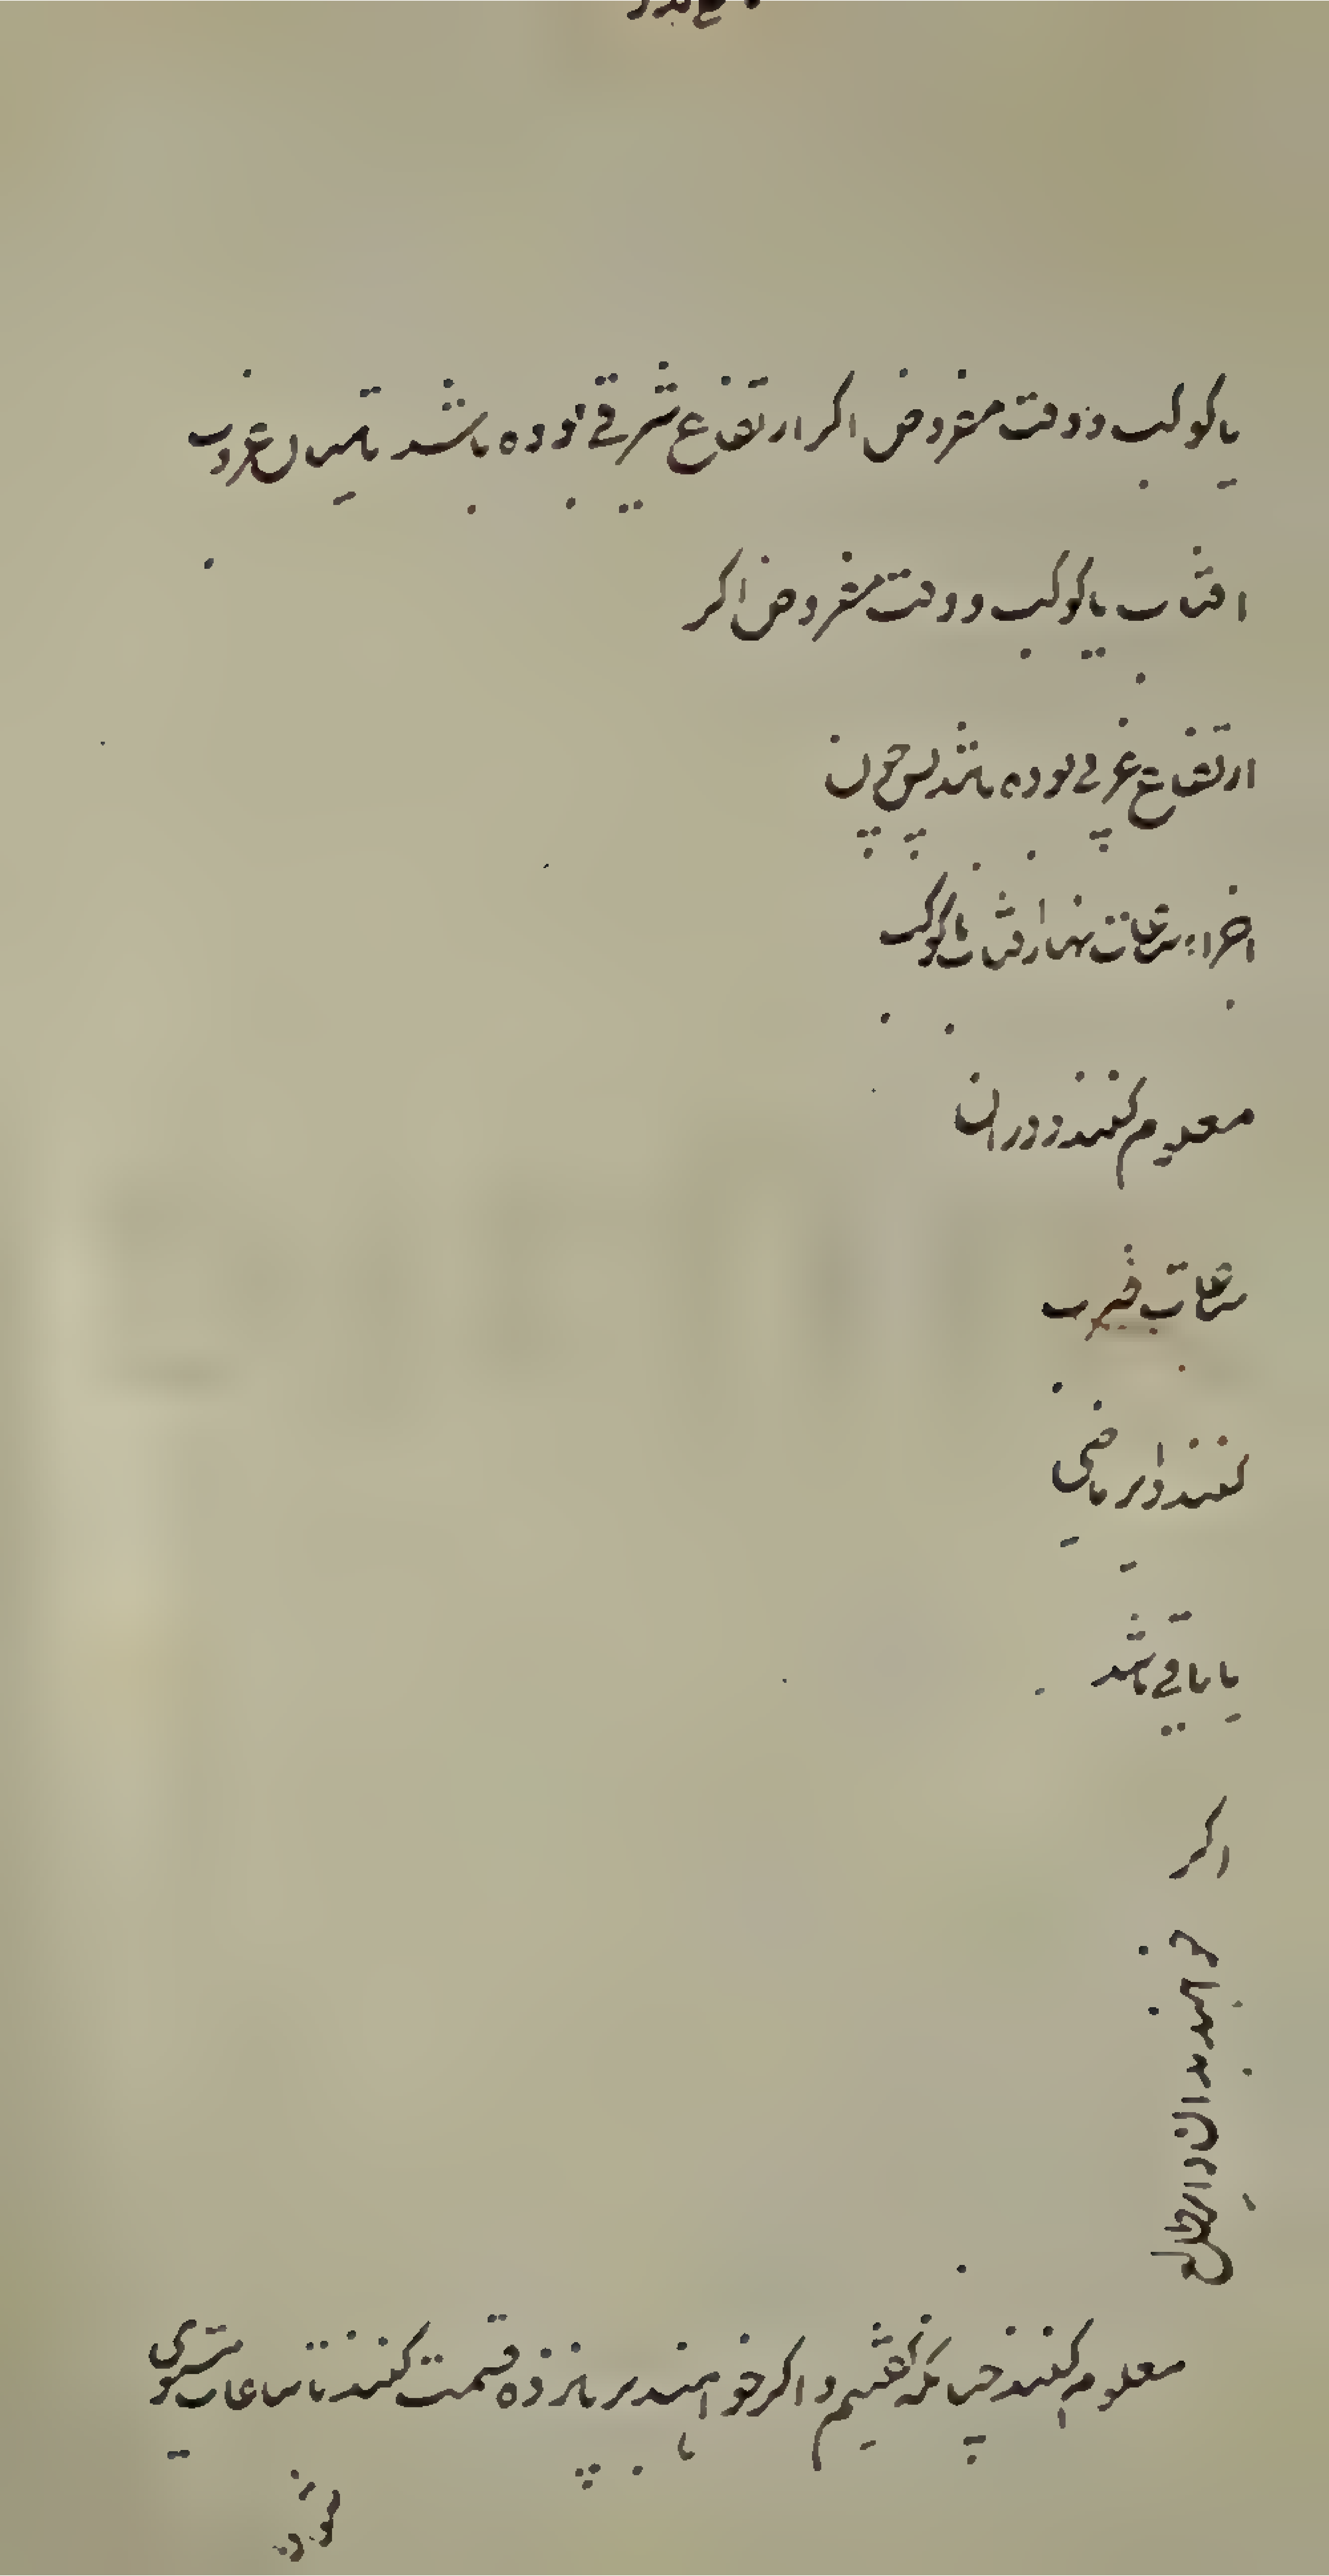 یا کوکب و وقت مفروض اکر ارتفاع شرقی بوده باشد یا میان غروب
افتاب یا کوکب و وقت مفروض اکر
ارتفاع غربی بوده باشد پس چون
اجزاء ساعات نهار افتاب یا کوکب
معلوم کنند و در ان
ساعات ضرب
کنند دایر ماضی
یا باقی باشد
اکر
خواهند بدان دایر ظل
معلوم کنند چنانکه کفتیم و اکر خواهند بر پانزده قسمت کنند تا ساعات مستوی